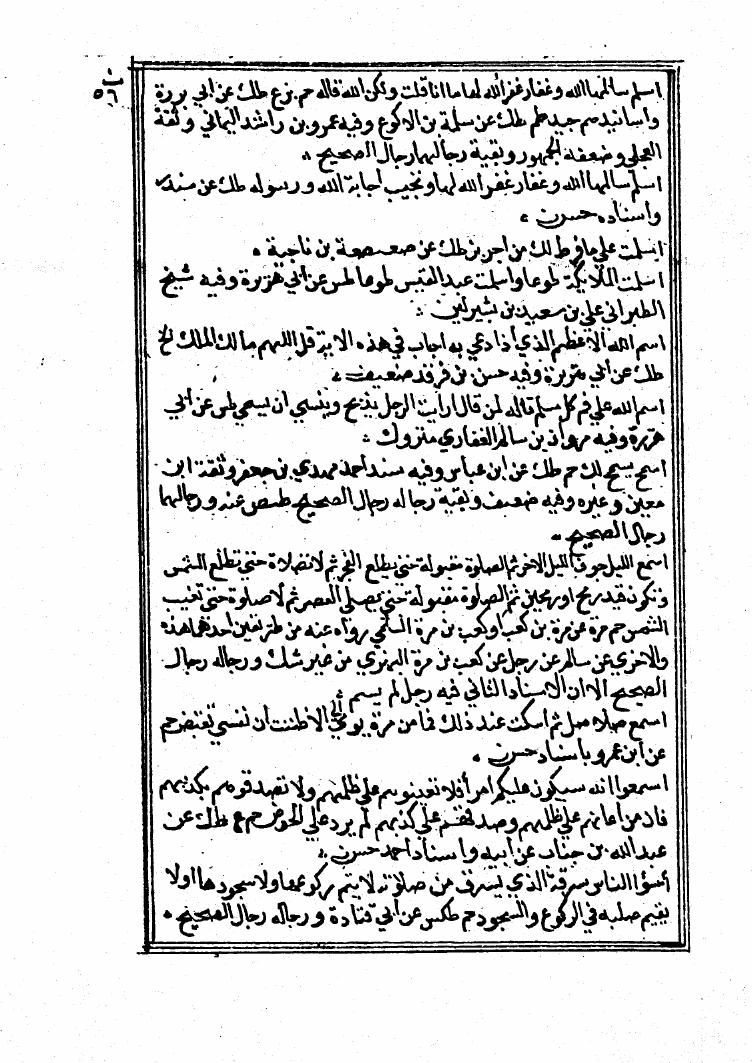 ث
٥٦
اسلم سالمها الله وغفار غفر الله لها ما انا قلت ولكن الله قاله حم بز ع طك عن ابي برزة
واسانيدهم جيد حم طك عن سلمة بن الاكوع وفيه عمرو بن راشد اليماني وثقة
العجلي وضعفه الجمهور وبقية رجالهما رجال الصحيح
اسلم سالمها الله وغفار غفر الله لها وتجيب اجابة الله ورسوله طك عن سندر
واسناده حسن
اسلمت علي ما فرط لك من اجر بز طك عن صعصعة بن ناجية
اسلمت الملائكة طوعا واسلمت عبد القيس طوعا طس عن ابي هريرة وفيه شيخ
الطبراني علي بن سعيد بن بشير لين
اسم الله الاعظم الذي اذا دعي به اجاب في هذه الاية قل اللهم مالك الملك الخ
طك عن ابي هريرة وفيه حسن بن فرقد ضعيف
اسم الله علي فم كل مسلم قاله لمن قال ارايت الرجل يذبح وينسي ان يسمي طس عن ابي
هريرة وفيه مروان بن سالم الغفاري متروك
اسمح يسمح لك حم طك عن ابن عباس وفيه سند احمد مهدي بن جعفر وثقة ابن
معين وغيره وفيه ضعيف وبقية رجاله رجال الصحيح طس ص عنه ورجالهما
رجال الصحيح
اسمع الليل جوف الليل الاخر ثم الصلوة مقبولة حتي يطلع الفجر ثم لا صلاة حتي تطلع الشمس
وتكون قيد رمح او رمحين ثم الصلوة مقبولة حتي يصلي العصر ثم لا صلوة حتي تغيب
الشمس حم مرة عن مرة بن كعب او كعب بن مرة السلمي رواه عنه من طريقين احدهما هذه
والاخري عن سالم عن رجل عن كعب بن مرة البهزي من غير شك ورجاله رجال
الصحيح الا ان الاسناد الثاني فيه رجل لم يسم
اسمع صلاصل ثم اسكت عند ذلك فما من مرة يوحي الي الا ظننت ان نفسي تقبض حم
عن ابن عمرو باسناد حسن
اسمعوا انه سيكون عليكم امرا فلا تعينوهم علي ظلمهم ولا تصدقوهم بكذبهم
فان من اعانهم علي ظلمهم وصدقهم علي كذبهم لم يرد علي الحوض حم ع طك عن
عبد الله بن خباب عن ابيه واسناد احمد حسن
أسؤا الناس سرقة الذي يسرق من صلوته لا يتم ركوعها ولا سجودها او لا
يقيم صلبه في الركوع والسجود حم طكس عن ابي قتادة ورجاله رجال الصحيح